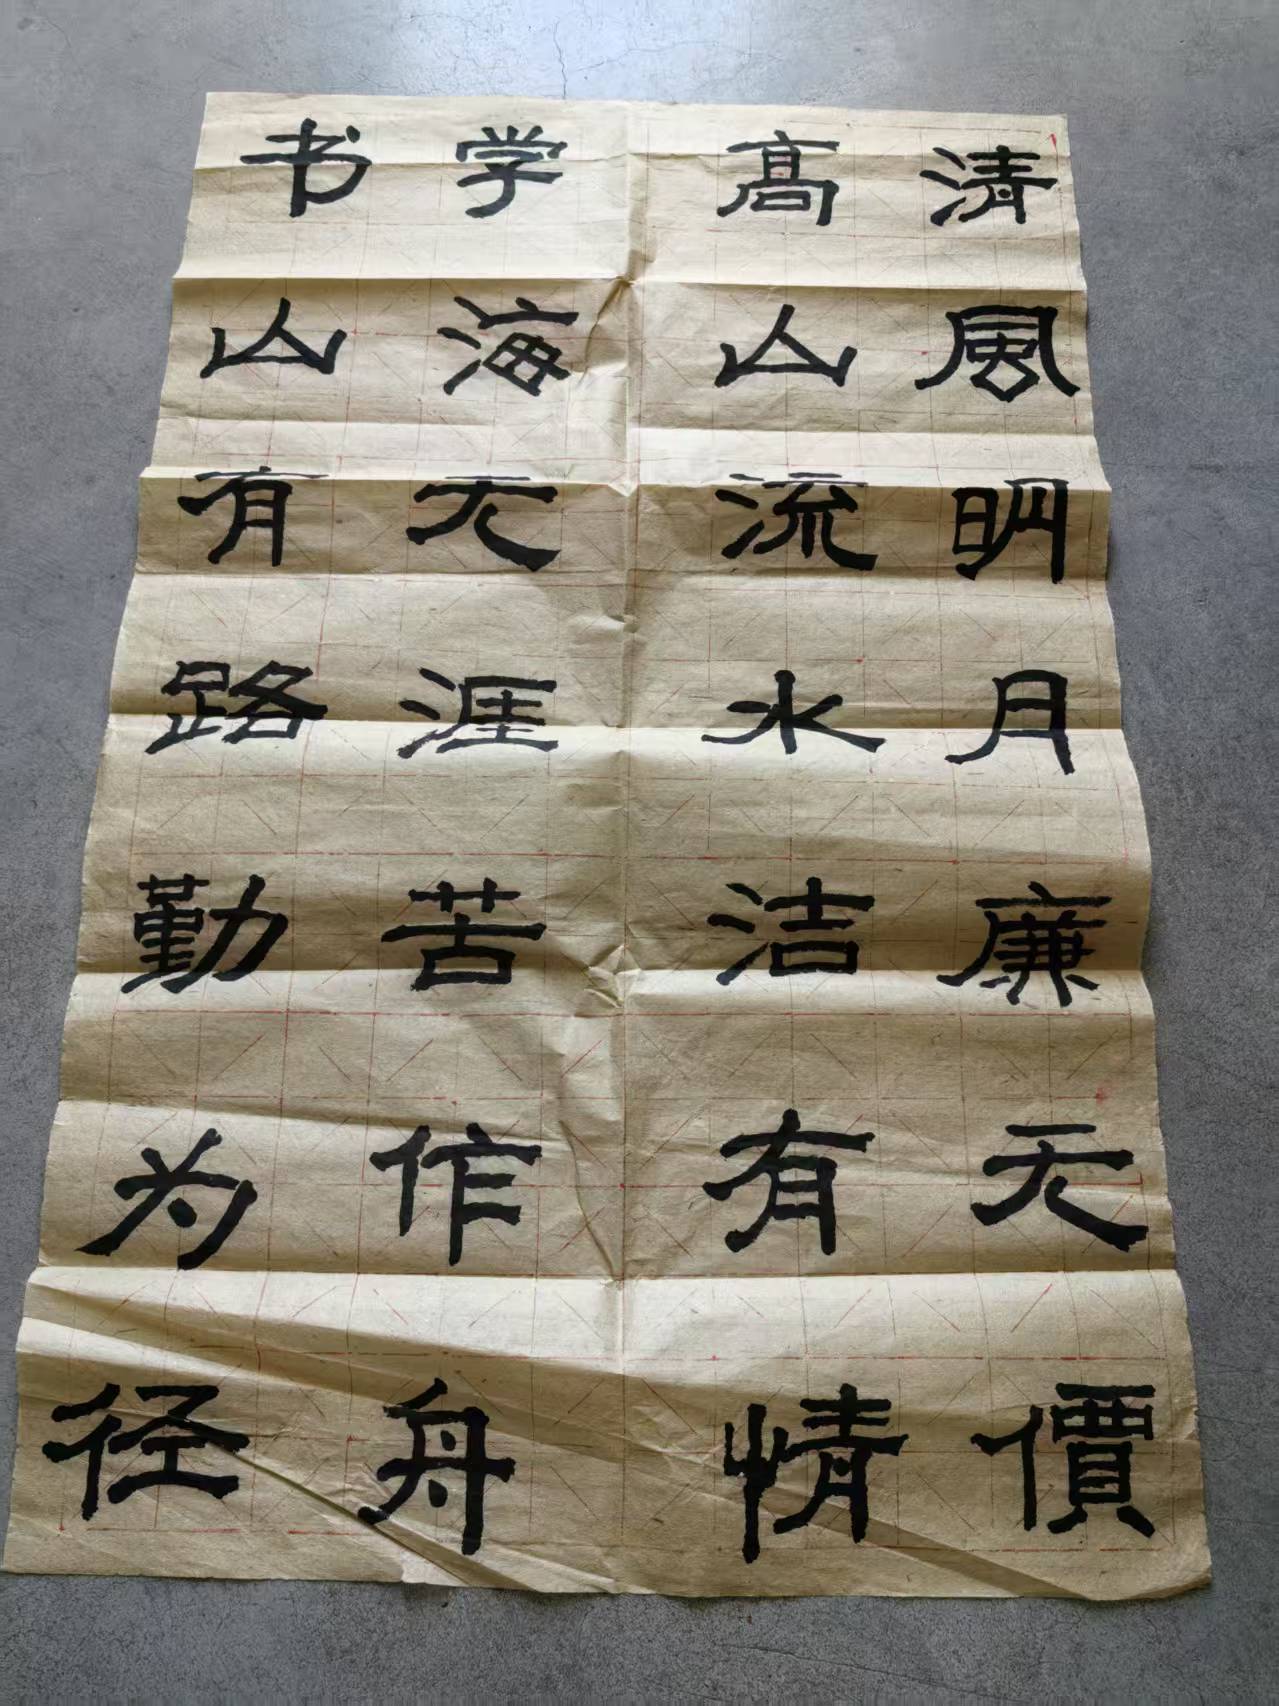 清风明月廉无價
高山流水洁有情
学海无涯苦作舟
书山有路勤为径